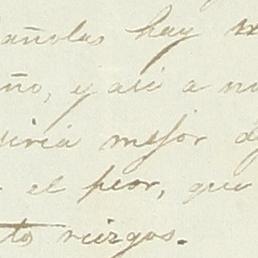 añolas hay
ño, y asi a
iria mejor
el peor, que
to riezgos.